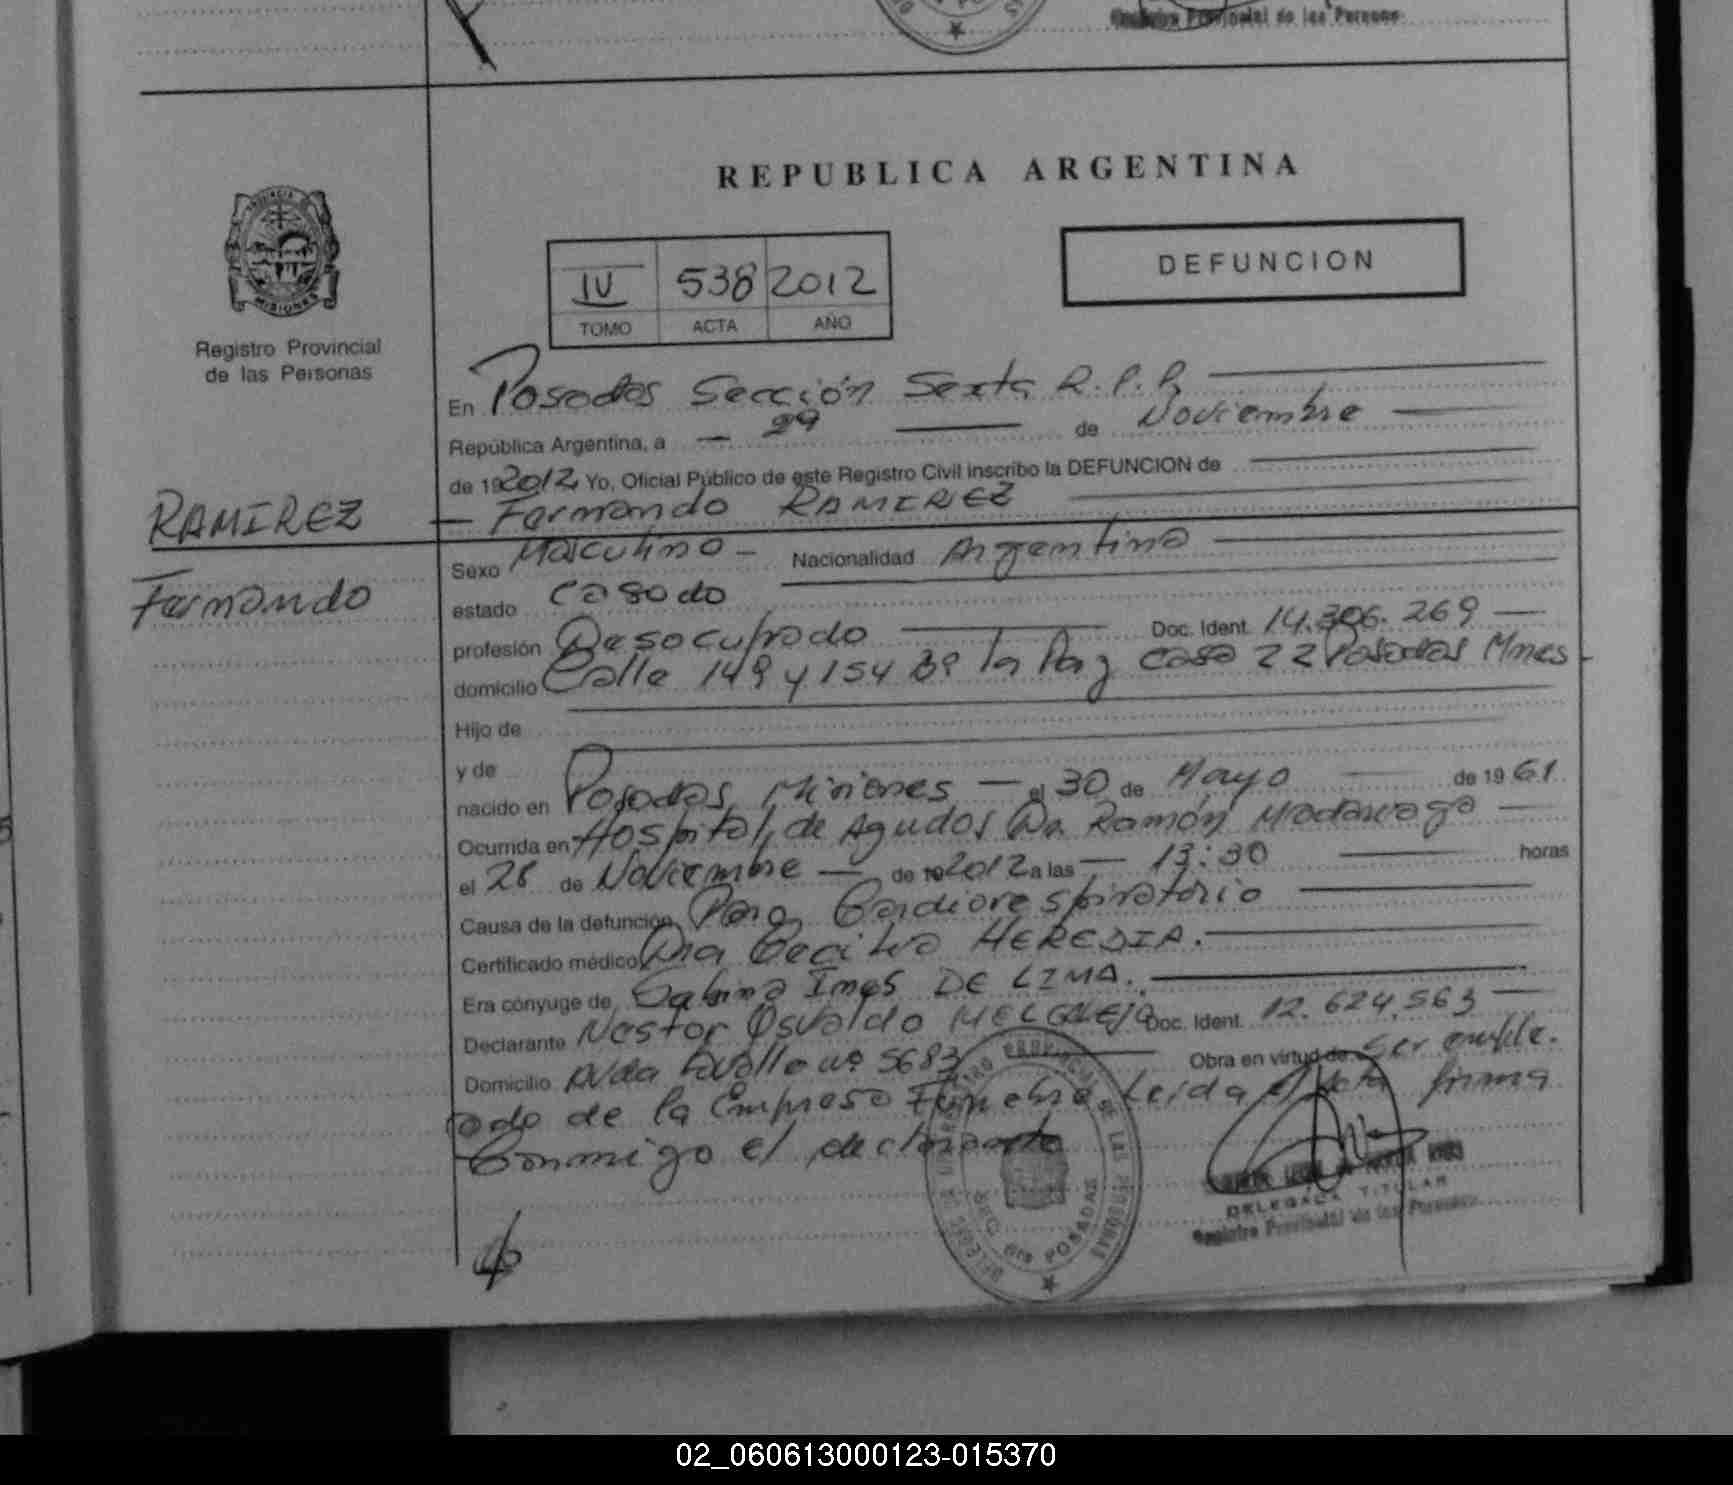 Registro Provincial de las Persona
REPUBLICA ARGENTINA
IV 538 2012
TOMO ACTA AÑO
DEFUNCION
PROVINCIA DE MISIONES
Registro Provincial
de las Personas
RAMIREZ
Fernando
En Posadas Sección Sexta R.P.P.
República Argentina, a 29 de Noviembre
de 192012 Yo, Oficial Público de este Registro Civil inscribo la DEFUNCION de
Fernando RAMIREZ
Sexo Masculino Nacionalidad Argentina
estado Casado
profesión Desocupado Doc. Ident. 14.306.269
domicilio Calle 149 y 154 Bº la Paz casa 22 Posadas Mnes
Hijo de
y de
nacido en Posadas, Misiones el 30 de Mayo de 1961
Ocurrida en Hospital de Agudos Dr. Ramón Madariaga
el 28 de Noviembre de 192012 a las 13:30 horas
Causa de la defunción Paro Cardiorespiratorio
Certificado médico Dra Cecilia HEREDIA.
Era cónyuge de Sabina Ines DE LIMA.
Declarante Nestor Osvaldo MELGAREJO Doc. Ident. 12.624.563
Domicilio Avda Lavalle nº 5683 Obra en virtud de Ser emple.
ado de la Empresa Funebre Leida el Acta firma
Conmigo el declarante
REGISTRO PROVINCIAL DE LAS PERSONAS
SEC. 6ta POSADAS
DELEGADA TITULAR
Registro Provincial de las Personas
02_060613000123-015370